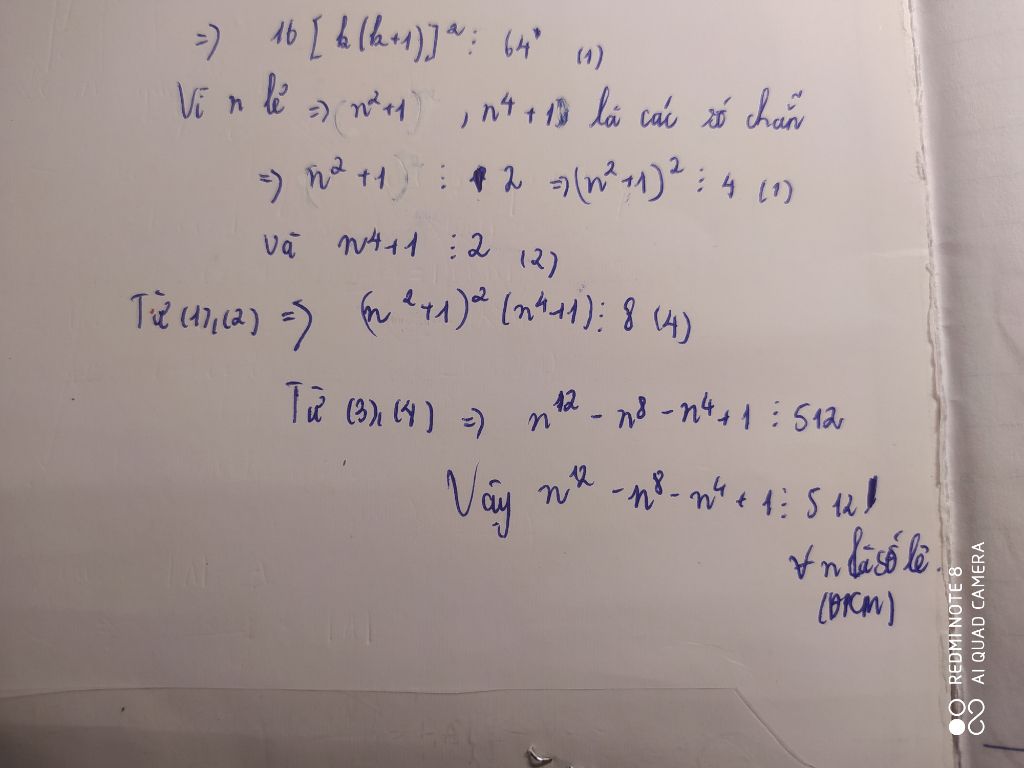 => 16 [k(k+1)]² ⋮ 64 (1)
Vì n lẻ => (n²+1) , n⁴+1 là các số chẵn
=> n²+1 ⋮ 2 => (n²+1)² ⋮ 4 (1)
và n⁴+1 ⋮ 2 (2)
Từ (1),(2) => (n²+1)² (n⁴+1) ⋮ 8 (4)
Từ (3),(4) => n¹² - n⁸ - n⁴ + 1 ⋮ 512
Vậy n¹² - n⁸ - n⁴ + 1 ⋮ 512
∀ n là số lẻ.
(ĐPCM)
REDMI NOTE 8
AI QUAD CAMERA